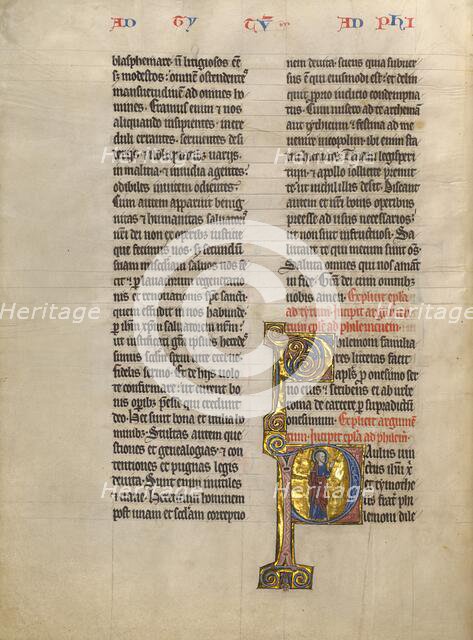 AD TY CVM AD PHI
blasphemare. n̄ litigiosos eē
s; modestos. omnem ostendentes
mansuetudinem ad omnes ho
mines. Eramus enim & nos
aliquando insipientes. incre
duli errantes. seruientes desi
deriis. & uoluptatibus uariis.
in malitia & inuidia agentes.
odibiles inuicem odientes.
Cum autem apparuit benig
nitas & humanitas saluatoris
nr̄i dei non ex operibus iusticie
que fecimus nos. s; secundū
suam misericordiam saluos nos fe
cit. p lauacrum regenerationis
nis & renouationis sp̄c sancti
quem effudit in nos habunde
p ihm̄ xpm̄ saluatorem nr̄m.
ut iustificati gr̄a ipsius heredes
simus scdm̄ spem uite eterne.
fidelis sermo. Et de hiis uolo
te confirmare. ut curent bonis
operibus preesse qui credunt
deo. Hec sunt bona & utilia ho
minibus. Stultas autem questiones
& genealogias & con
tentiones & pugnas legis
deuita. Sunt enim inutiles
& uane. Hereticum hominem
post unam et scdam̄ correptio
nem deuita. sciens quia subuer
sus est qui eiusmodi est. & delin
quit. proprio iudicio condempna
tus. Cum misero ad te arthemam
aut tychicum. & festina ad me
uenire nicopolim. ibi enim sta
tui hiemare. Zenam legisperi
tum & apollo sollicite premitte
ut nichil illis desit. Discant
autem et nr̄i bonis operibus
preesse ad usus necessarios.
ut non sint infructuosi. Sa
lutant te qui mecum sunt oēs.
Saluta omnes qui nos amant
in fide. Gr̄a dei cum omnibus
uobis amen. Explicit epl̄a
ad tytum. Incipit argumen
tum epl̄e ad philemonem.
Philemoni familia
res litteras facit
p onesimo ser
uo eius. scribens ei ab urbe
roma de carcere p supradictū
onesimum. Explicit argumen
tum. Incipit epl̄a ad philem̄.
Paulus uin
ctus ihū x̄
et tymothe
us frater phi
lemoni dile
Heritage
Images